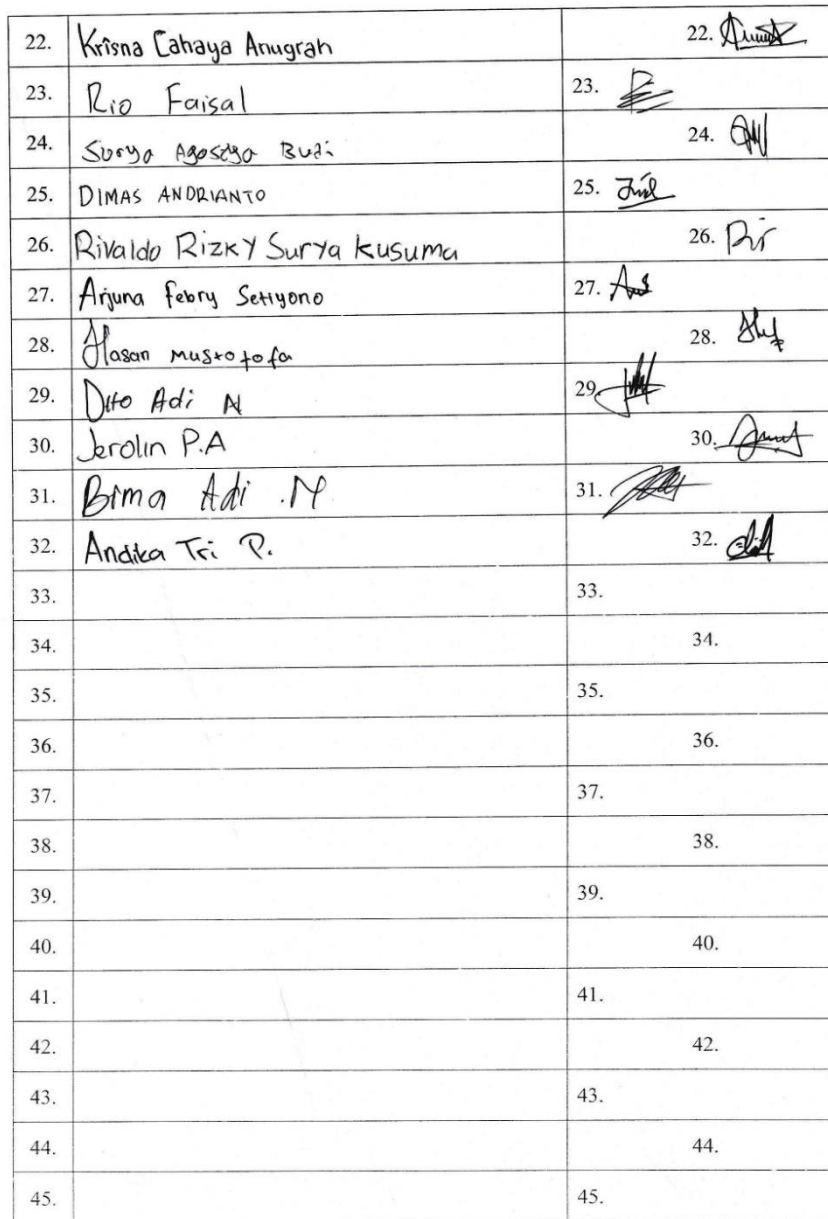 22. Krisna Cahaya Anugrah 22.
23. Rio Faisal 23.
24. Surya Agostya Budi 24.
25. DIMAS ANDRIANTO 25.
26. Rivaldo Rizky Surya Kusuma 26.
27. Arjuna Febry Setiyono 27.
28. Hasan Mustofofa 28.
29. Dito Adi N 29.
30. Jerolin P.A 30.
31. Bima Adi .N 31.
32. Andika Tri P. 32.
33. 33.
34. 34.
35. 35.
36. 36.
37. 37.
38. 38.
39. 39.
40. 40.
41. 41.
42. 42.
43. 43.
44. 44.
45. 45.